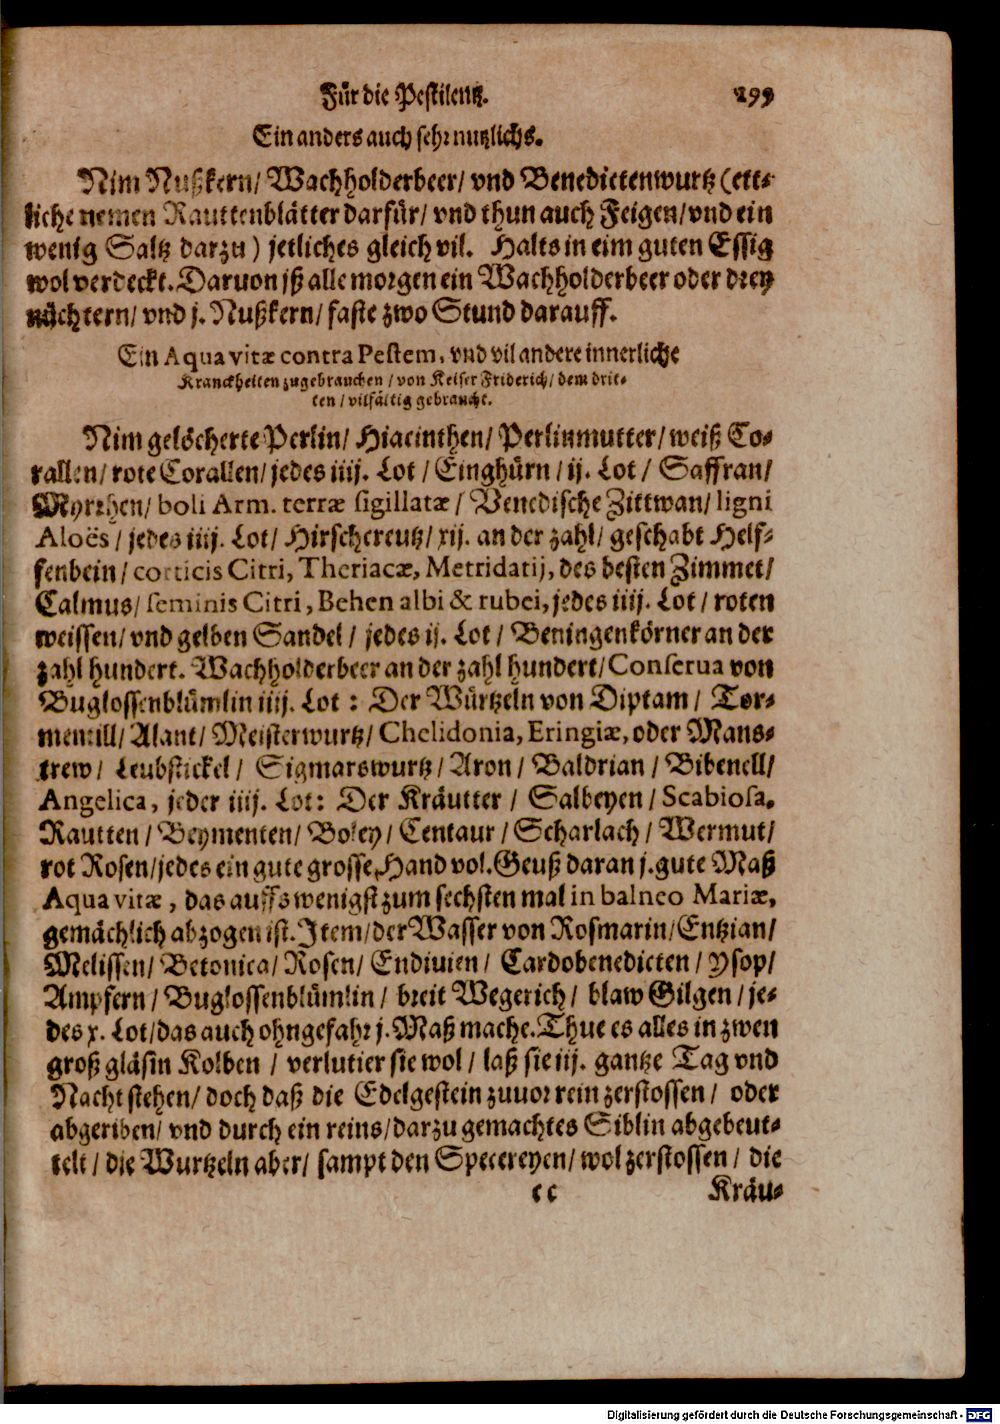 Für die Pestilentz. 299
Ein anders auch sehr nutzlichs.
Nim Nußkern/ Wachholderbeer/ vnd Benedictenwurtz (ett-
liche nemen Rauttenblätter darfür/ vnd thun auch Feigen/vnd ein
wenig Saltz darzu) jetliches gleich vil. Halts in eim guten Essig
wol verdeckt. Daruon iß alle morgen ein Wachholderbeer oder drey
nüchtern/ vnd j. Nußkern/ faste zwo Stund darauff.
Ein Aqua vitæ contra Pestem, vnd vil andere innerliche
Kranckheiten zugebrauchen / von Keiser Friderich/ dem drit-
ten / vilfältig gebraucht.
Nim gelöcherte Perlin/ Hiacinthen/ Perlinmutter/ weiß Co-
rallen/ rote Corallen/ jedes iiij. Lot / Einghürn / ij. Lot / Saffran/
Myrrhen/ boli Arm. terræ sigillatæ / Venedische Zittwan/ ligni
Aloës / jedes iiij. Lot/ Hirschcreutz/ xij. an der zahl/ geschabt Helf-
fenbein/ corticis Citri, Theriacæ, Metridatij, des besten Zimmet/
Calmus/ seminis Citri, Behen albi & rubei, jedes iiij. Lot / roten
weissen/ vnd gelben Sandel / jedes ij. Lot / Beningenkörner an der
zahl hundert. Wachholderbeer an der zahl hundert/ Conserua von
Buglossenblümlin iiij. Lot : Der Würtzeln von Diptam / Tor-
mentill/ Alant/ Meisterwurtz/ Chelidonia, Eringiæ, oder Mans-
trew/ Leubstickel/ Sigmarswurtz/ Aron / Baldrian / Bibenell/
Angelica, jeder iiij. Lot: Der Kräutter / Salbeyen/ Scabiosa.
Rautten / Beymenten/ Boley / Centaur / Scharlach / Wermut/
rot Rosen/jedes ein gute grosse Hand vol. Geuß daran j. gute Maß
Aqua vitæ, das auffs wenigst zum sechsten mal in balneo Mariæ,
gemächlich abzogen ist. Item/ der Wasser von Rosmarin/ Entzian/
Melissen/ Betonica/ Rosen/ Endiuien/ Cardobenedicten / Ysop/
Ampfern/ Buglossenblümlin / breit Wegerich/ blaw Gilgen / je-
des x. Lot/das auch ohngefahr j. Maß mache. Thue es alles in zwen
groß gläsin Kolben / verlutier sie wol / laß sie iij. gantze Tag vnd
Nacht stehen/ doch daß die Edelgestein zuuor rein zerstossen / oder
abgeriben/ vnd durch ein reins/darzu gemachtes Siblin abgebeut-
telt / die Wurtzeln aber/ sampt den Specereyen/ wol zerstossen / die
cc Kräu-
Digitalisierung gefördert durch die Deutsche Forschungsgemeinschaft - DFG